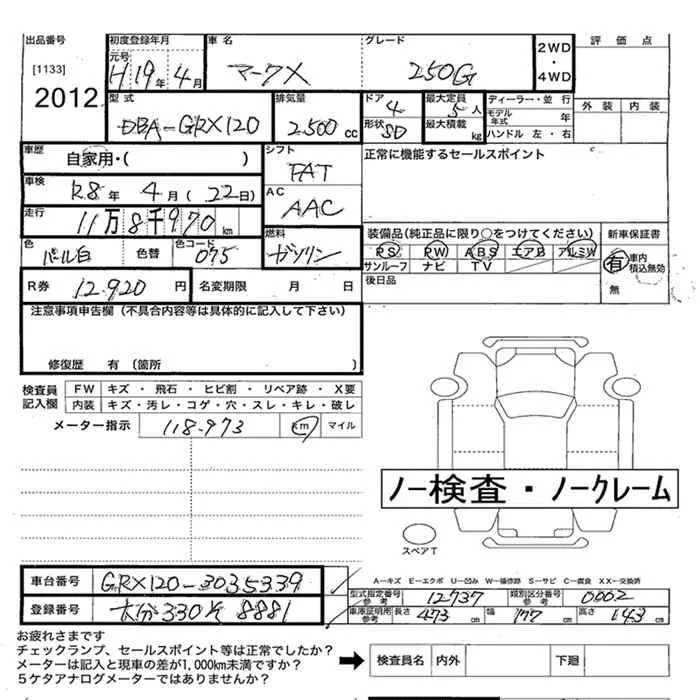 出品番号 初度登録年月 車名 グレード 2WD・4WD 評価点
[1133] 元号 H19年4月 マークX 250G
2012
型式 排気量 ドア 4 最大定員 5人 ディーラー・並行 外装 内装
DBA-GRX120 2500cc 形状 SD 最大積載 kg モデル年式 年
ハンドル 左・右
車歴 自家用・( ) シフト FAT 正常に機能するセールスポイント
車検 R8年4月(22日) AC AAC
走行 11万8千970km
装備品(純正品に限り○をつけてください) 新車保証書
色 パール白 色替 色コード 075 燃料 ガソリン
PS PW ABS エアB アルミW 有 車内 積込無効
サンルーフ ナビ TV
R券 12.920円 名変期限 月 日 後日品 無
注意事項申告欄(不具合内容等は具体的に記入して下さい)
修復歴 有(箇所 )
検査員記入欄 FW キズ・飛石・ヒビ割・リペア跡・X要
内装 キズ・汚レ・コゲ・穴・スレ・キレ・破レ
メーター指示 118.973 km マイル
ノー検査・ノークレーム
スペアT
A-キズ E-エクボ U-凹み W-補修跡 S-サビ C-腐食 XX-交換済
車台番号 GRX120-3035339 型式指定番号 参考 12737 類別区分番号 参考 0002
登録番号 大分330 8881 車庫証明用 参考 長さ 473cm 幅 177cm 高さ 143cm
お疲れさまです
チェックランプ、セールスポイント等は正常でしたか?
メーターは記入と現車の差が1,000km未満ですか?
5ケタアナログメーターではありませんか?
検査員名 内外 下廻